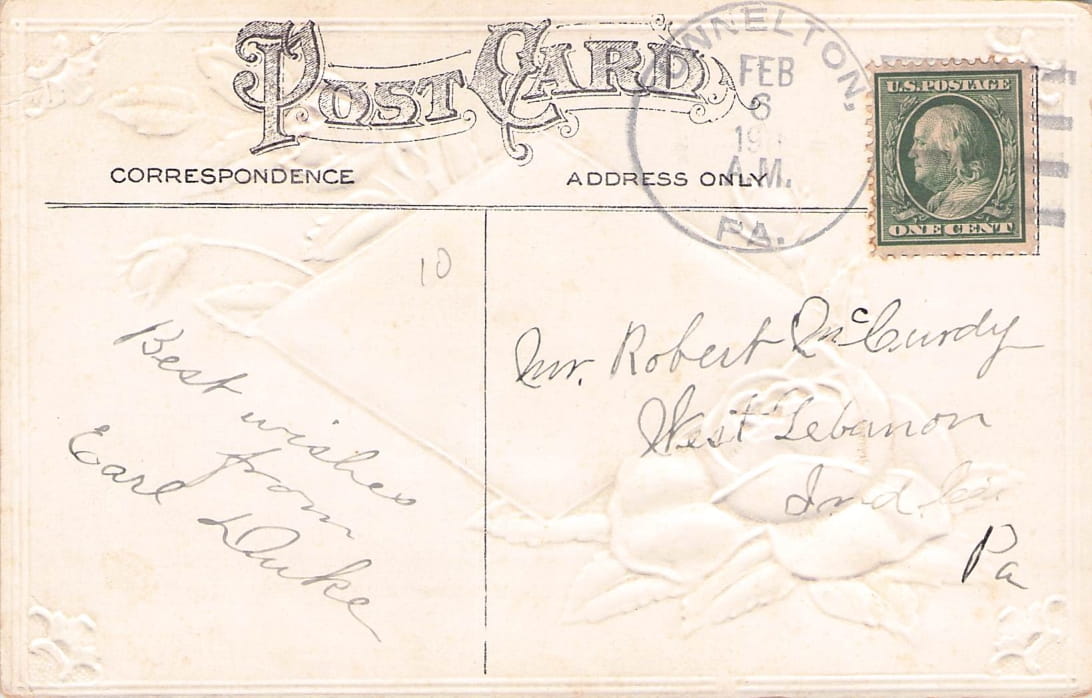 POST CARD
CORRESPONDENCE
ADDRESS ONLY
NNELTON,
FEB
6
19
A.M.
PA.
U.S. POSTAGE
ONE CENT
10
Best wishes
from
Earl Duke
Mr. Robert McCurdy
West Lebanon
Ind Co.
Pa